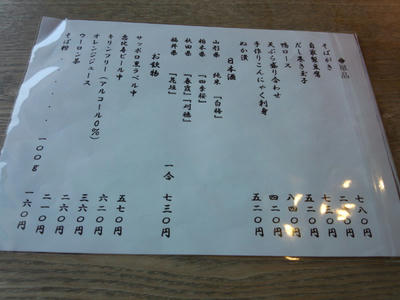 単品
そばがき 七八〇円
自家製豆腐 〇円
だし巻き玉子 七三〇円
鴨ロース 五二〇円
天ぷら盛り合わせ 八四〇円
手作りこんにゃく刺身 四二〇円
ぬか漬 五二〇円
日本酒
山形県 純米『白梅』
栃木県 『四季桜』
秋田県 『春霞』『刈穂』
福井県 『花垣』 一合 七三〇円
お飲物
サッポロ黒ラベル中 五七〇円
恵比寿ビール中 六二〇円
キリンフリー（アルコール０％） 三六〇円
オレンジジュース 二六〇円
ウーロン茶 二一〇円
そば粉・・・・・・１００ｇ 一六〇円